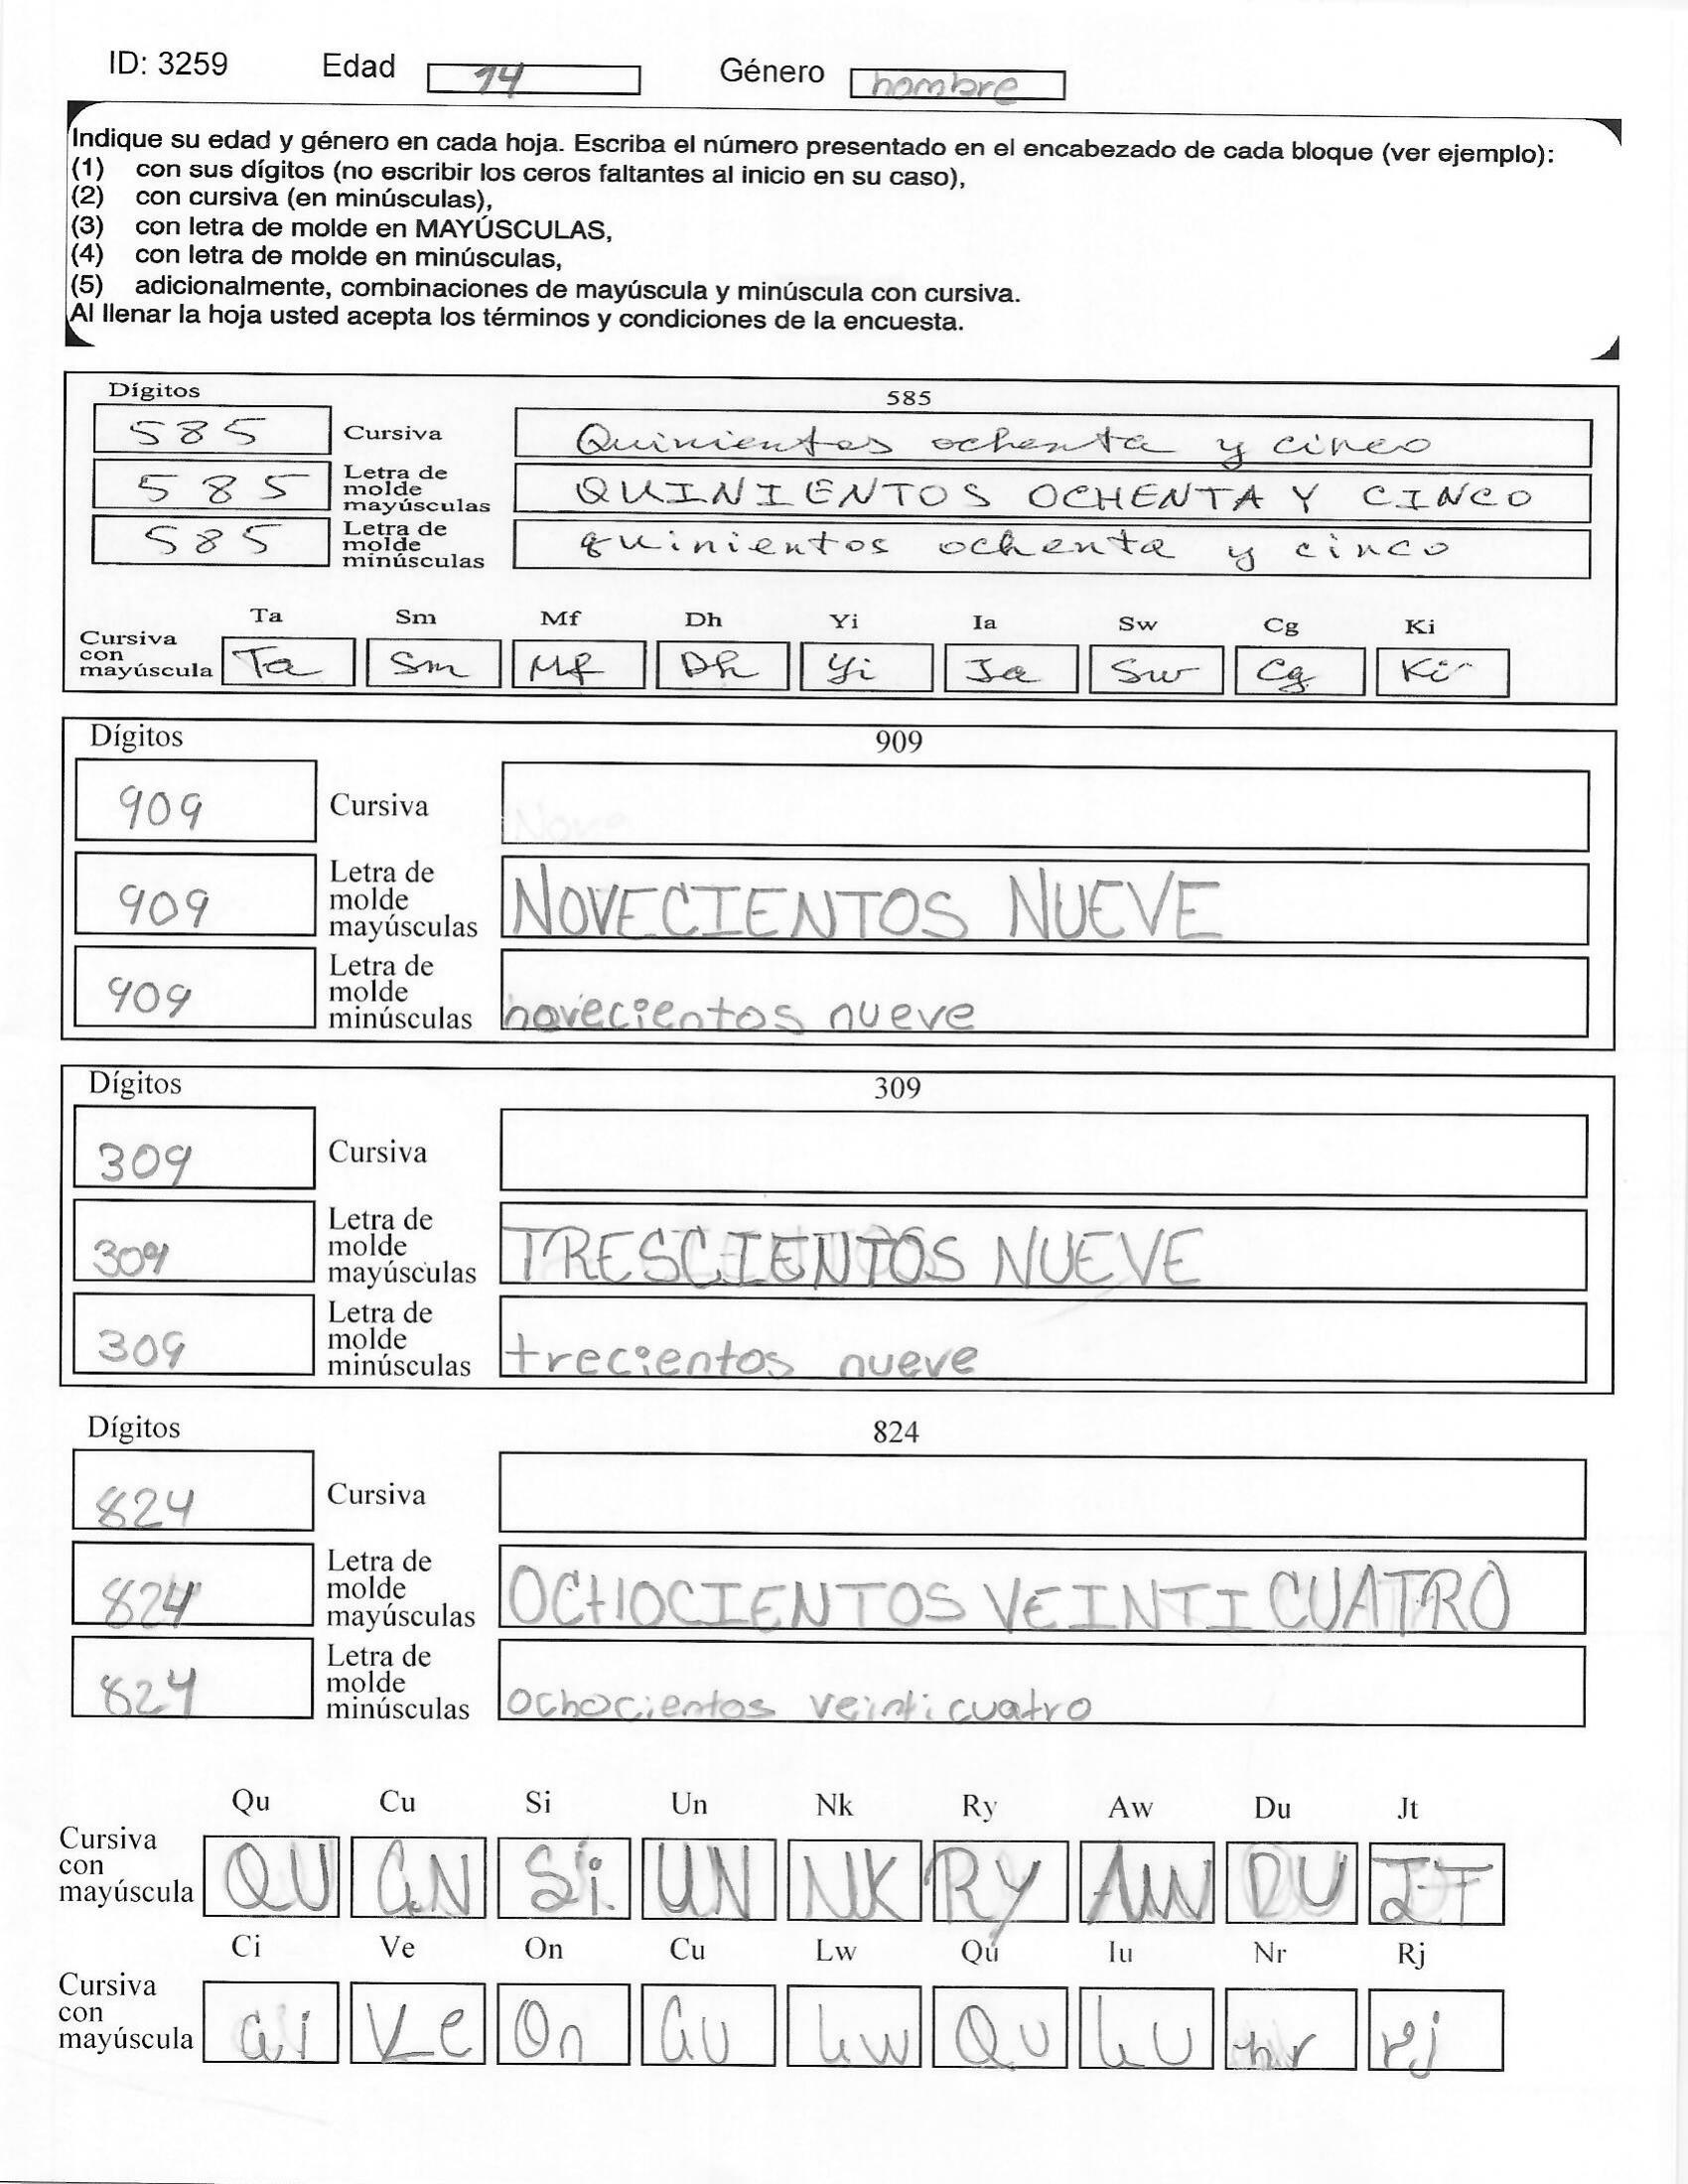 ID: 3259 Edad 14 Género hombre
Indique su edad y género en cada hoja. Escriba el número presentado en el encabezado de cada bloque (ver ejemplo):
(1) con sus dígitos (no escribir los ceros faltantes al inicio en su caso),
(2) con cursiva (en minúsculas),
(3) con letra de molde en MAYÚSCULAS,
(4) con letra de molde en minúsculas,
(5) adicionalmente, combinaciones de mayúscula y minúscula con cursiva.
Al llenar la hoja usted acepta los términos y condiciones de la encuesta.
Dígitos 585
585 Cursiva Quinientos ochenta y cinco
585 Letra de molde mayúsculas QUINIENTOS OCHENTA Y CINCO
585 Letra de molde minúsculas quinientos ochenta y cinco
Ta Sm Mf Dh Yi Ia Sw Cg Ki
Cursiva con mayúscula Ta Sm Mf Dh Yi Ia Sw Cg Ki
Dígitos 909
909 Cursiva
909 Letra de molde mayúsculas NOVECIENTOS NUEVE
909 Letra de molde minúsculas novecientos nueve
Dígitos 309
309 Cursiva
309 Letra de molde mayúsculas TRESCIENTOS NUEVE
309 Letra de molde minúsculas trecientos nueve
Dígitos 824
824 Cursiva
824 Letra de molde mayúsculas OCHOCIENTOS VEINTI CUATRO
824 Letra de molde minúsculas ochocientos veinti cuatro
Qu Cu Si Un Nk Ry Aw Du Jt
Cursiva con mayúscula QU Si UN NK RY AW DU
Ci Ve On Cu Lw Qu Iu Nr Rj
Cursiva con mayúscula Ci Ve On Cu Lw Qu nr rj